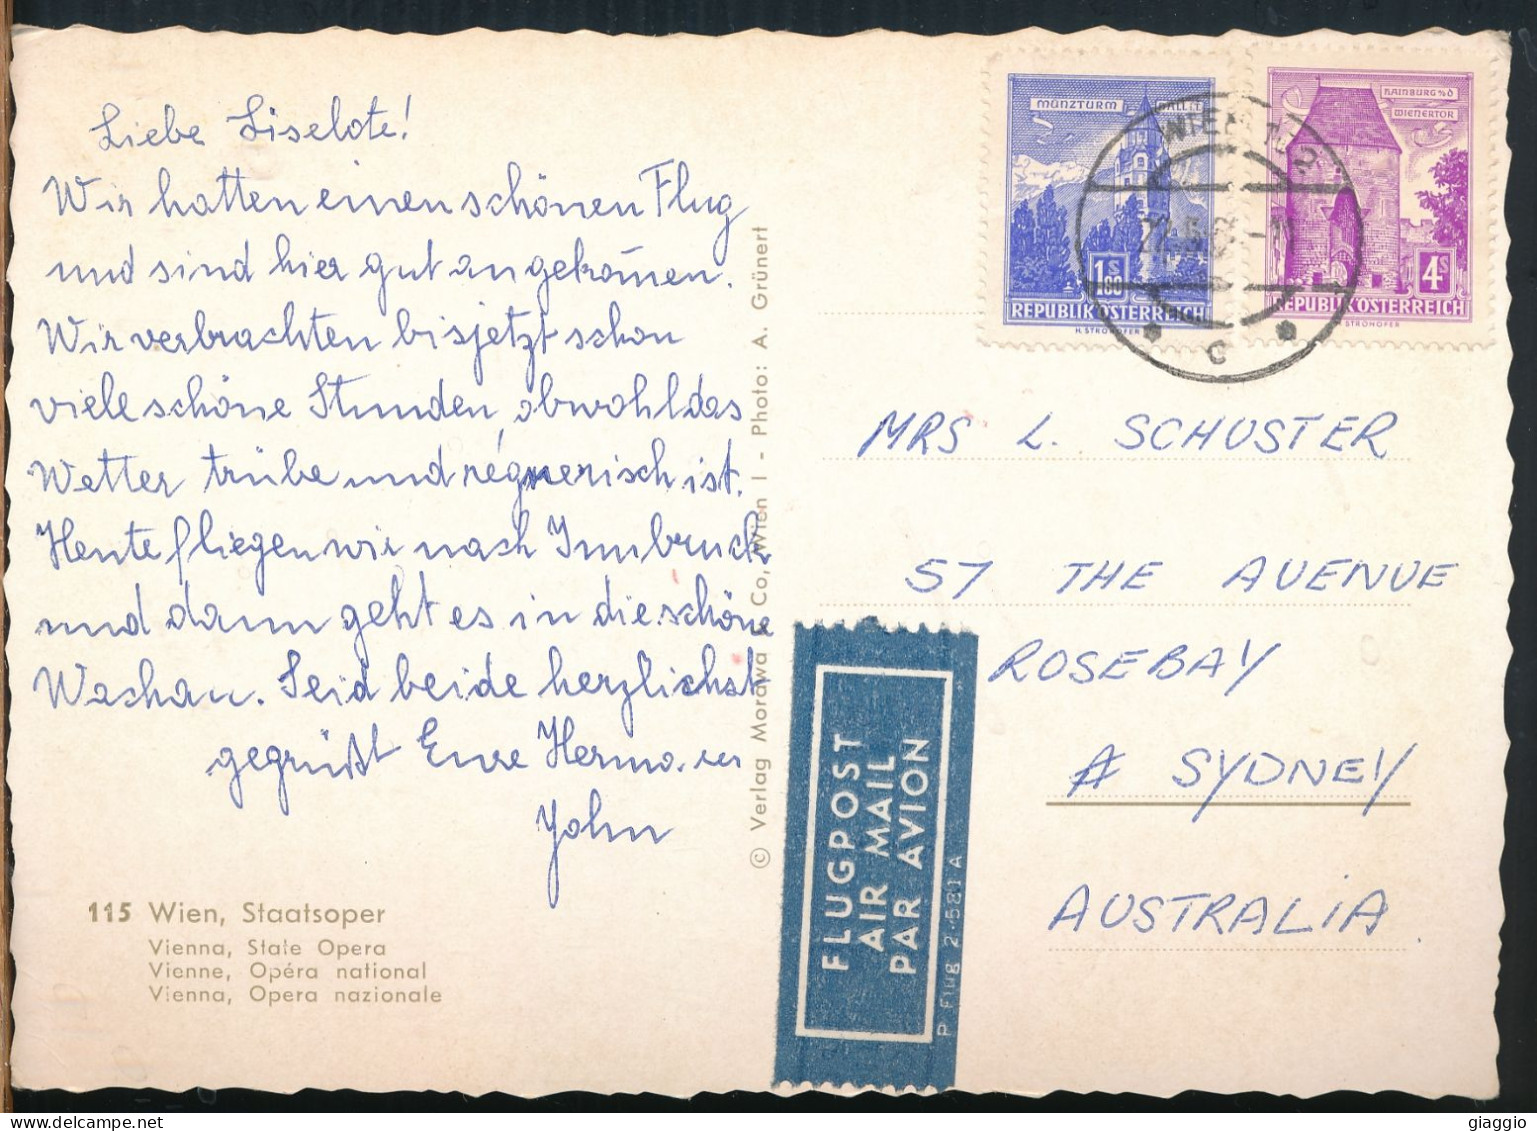 Liebe Liselote!
Wir hatten einen schönen Flug
und sind hier gut angekom̄en.
Wir verbrachten bis jetzt schon
viele schöne Stunden, obwohl das
Wetter trübe und regnerisch ist.
Heute fliegen wir nach Innbruck
und dann geht es in die schöne
Wachau. Seid beide herzlichst
gegrüßt Eure
John
115 Wien, Staatsoper
Vienna, State Opera
Vienne, Opéra national
Vienna, Opera nazionale
© Verlag Morawa & Co, Wien I - Photo: A. Grünert
FLUGPOST
AIR MAIL
PAR AVION
P Flug 2.-581 A
MÜNZTURM HALL i.T.
1.80 S
REPUBLIK ÖSTERREICH
H. STROHOFER
HAINBURG a/D
WIENERTOR
4 S
REPUBLIK ÖSTERREICH
STROHOFER
WIEN
c
MRS L. SCHUSTER
57 THE AVENUE
ROSEBAY
SYDNEY
AUSTRALIA.
giaggio